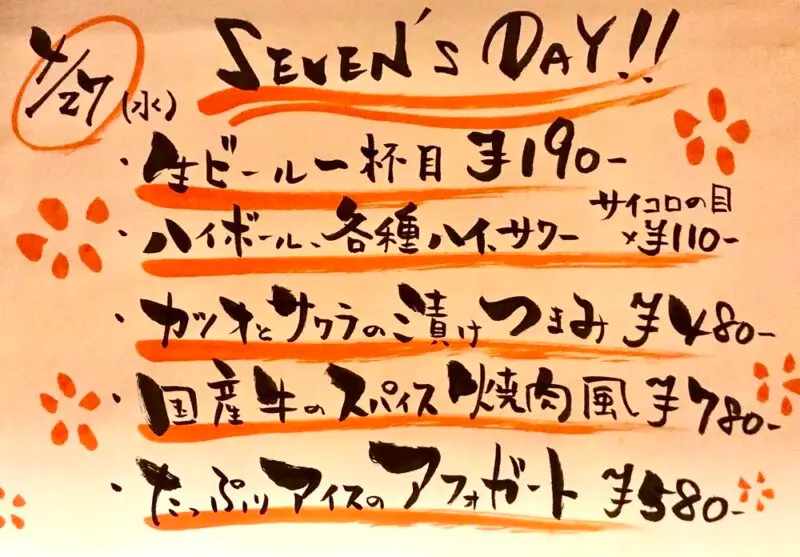 4/27(水) SEVEN'S DAY!!
・生ビール一杯目 ¥190-
・ハイボール、各種ハイ、サワー サイコロの目×¥110-
・カツオとサワラの漬けつまみ ¥480-
・国産牛のスパイス焼肉風 ¥780-
・たっぷりアイスのアフォガート ¥580-